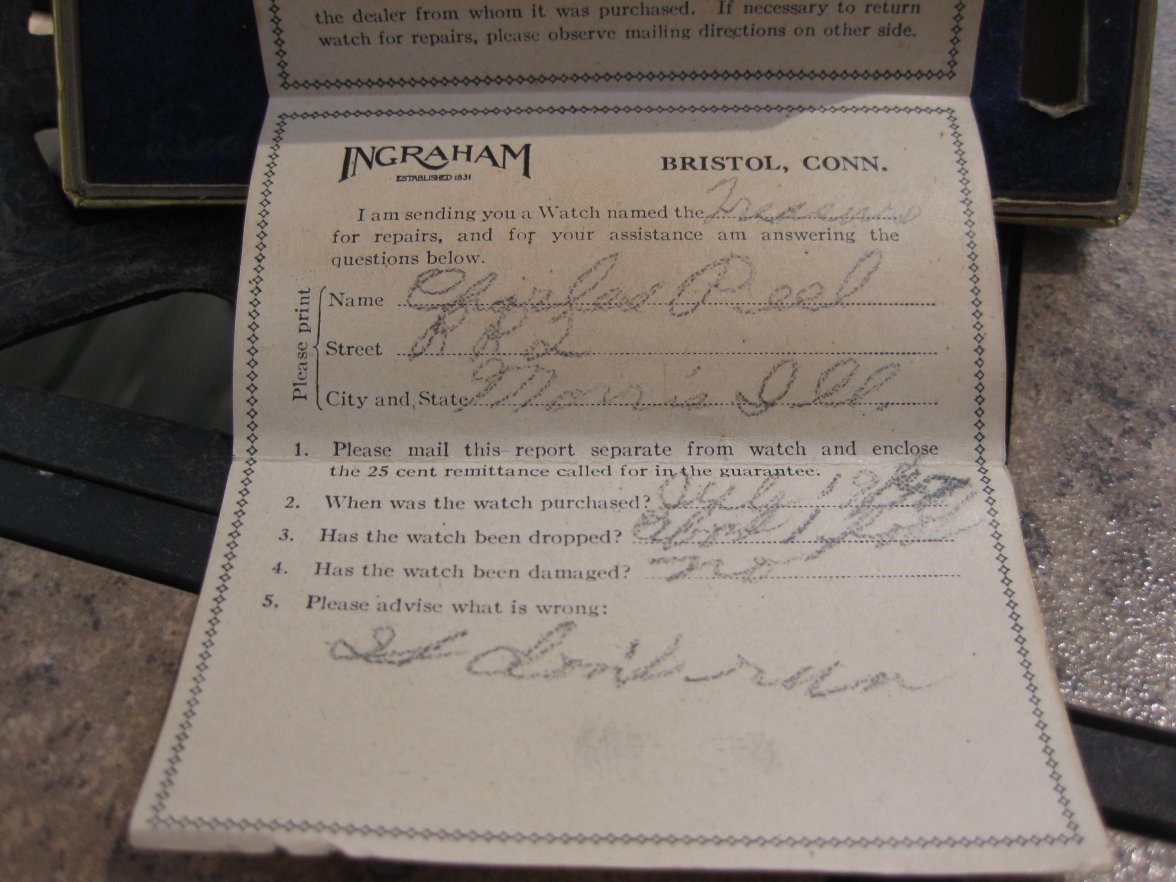 the dealer from whom it was purchased. If necessary to return
watch for repairs, please observe mailing directions on other side.
INGRAHAM
ESTABLISHED 1831
BRISTOL, CONN.
I am sending you a Watch named the
for repairs, and for your assistance am answering the
questions below.
Please print
Name Charles Peel
Street RR2
City and State Morris Ill.
1. Please mail this report separate from watch and enclose
the 25 cent remittance called for in the guarantee.
2. When was the watch purchased? July
3. Has the watch been dropped? about 1 foot
4. Has the watch been damaged? no
5. Please advise what is wrong:
It Don't run